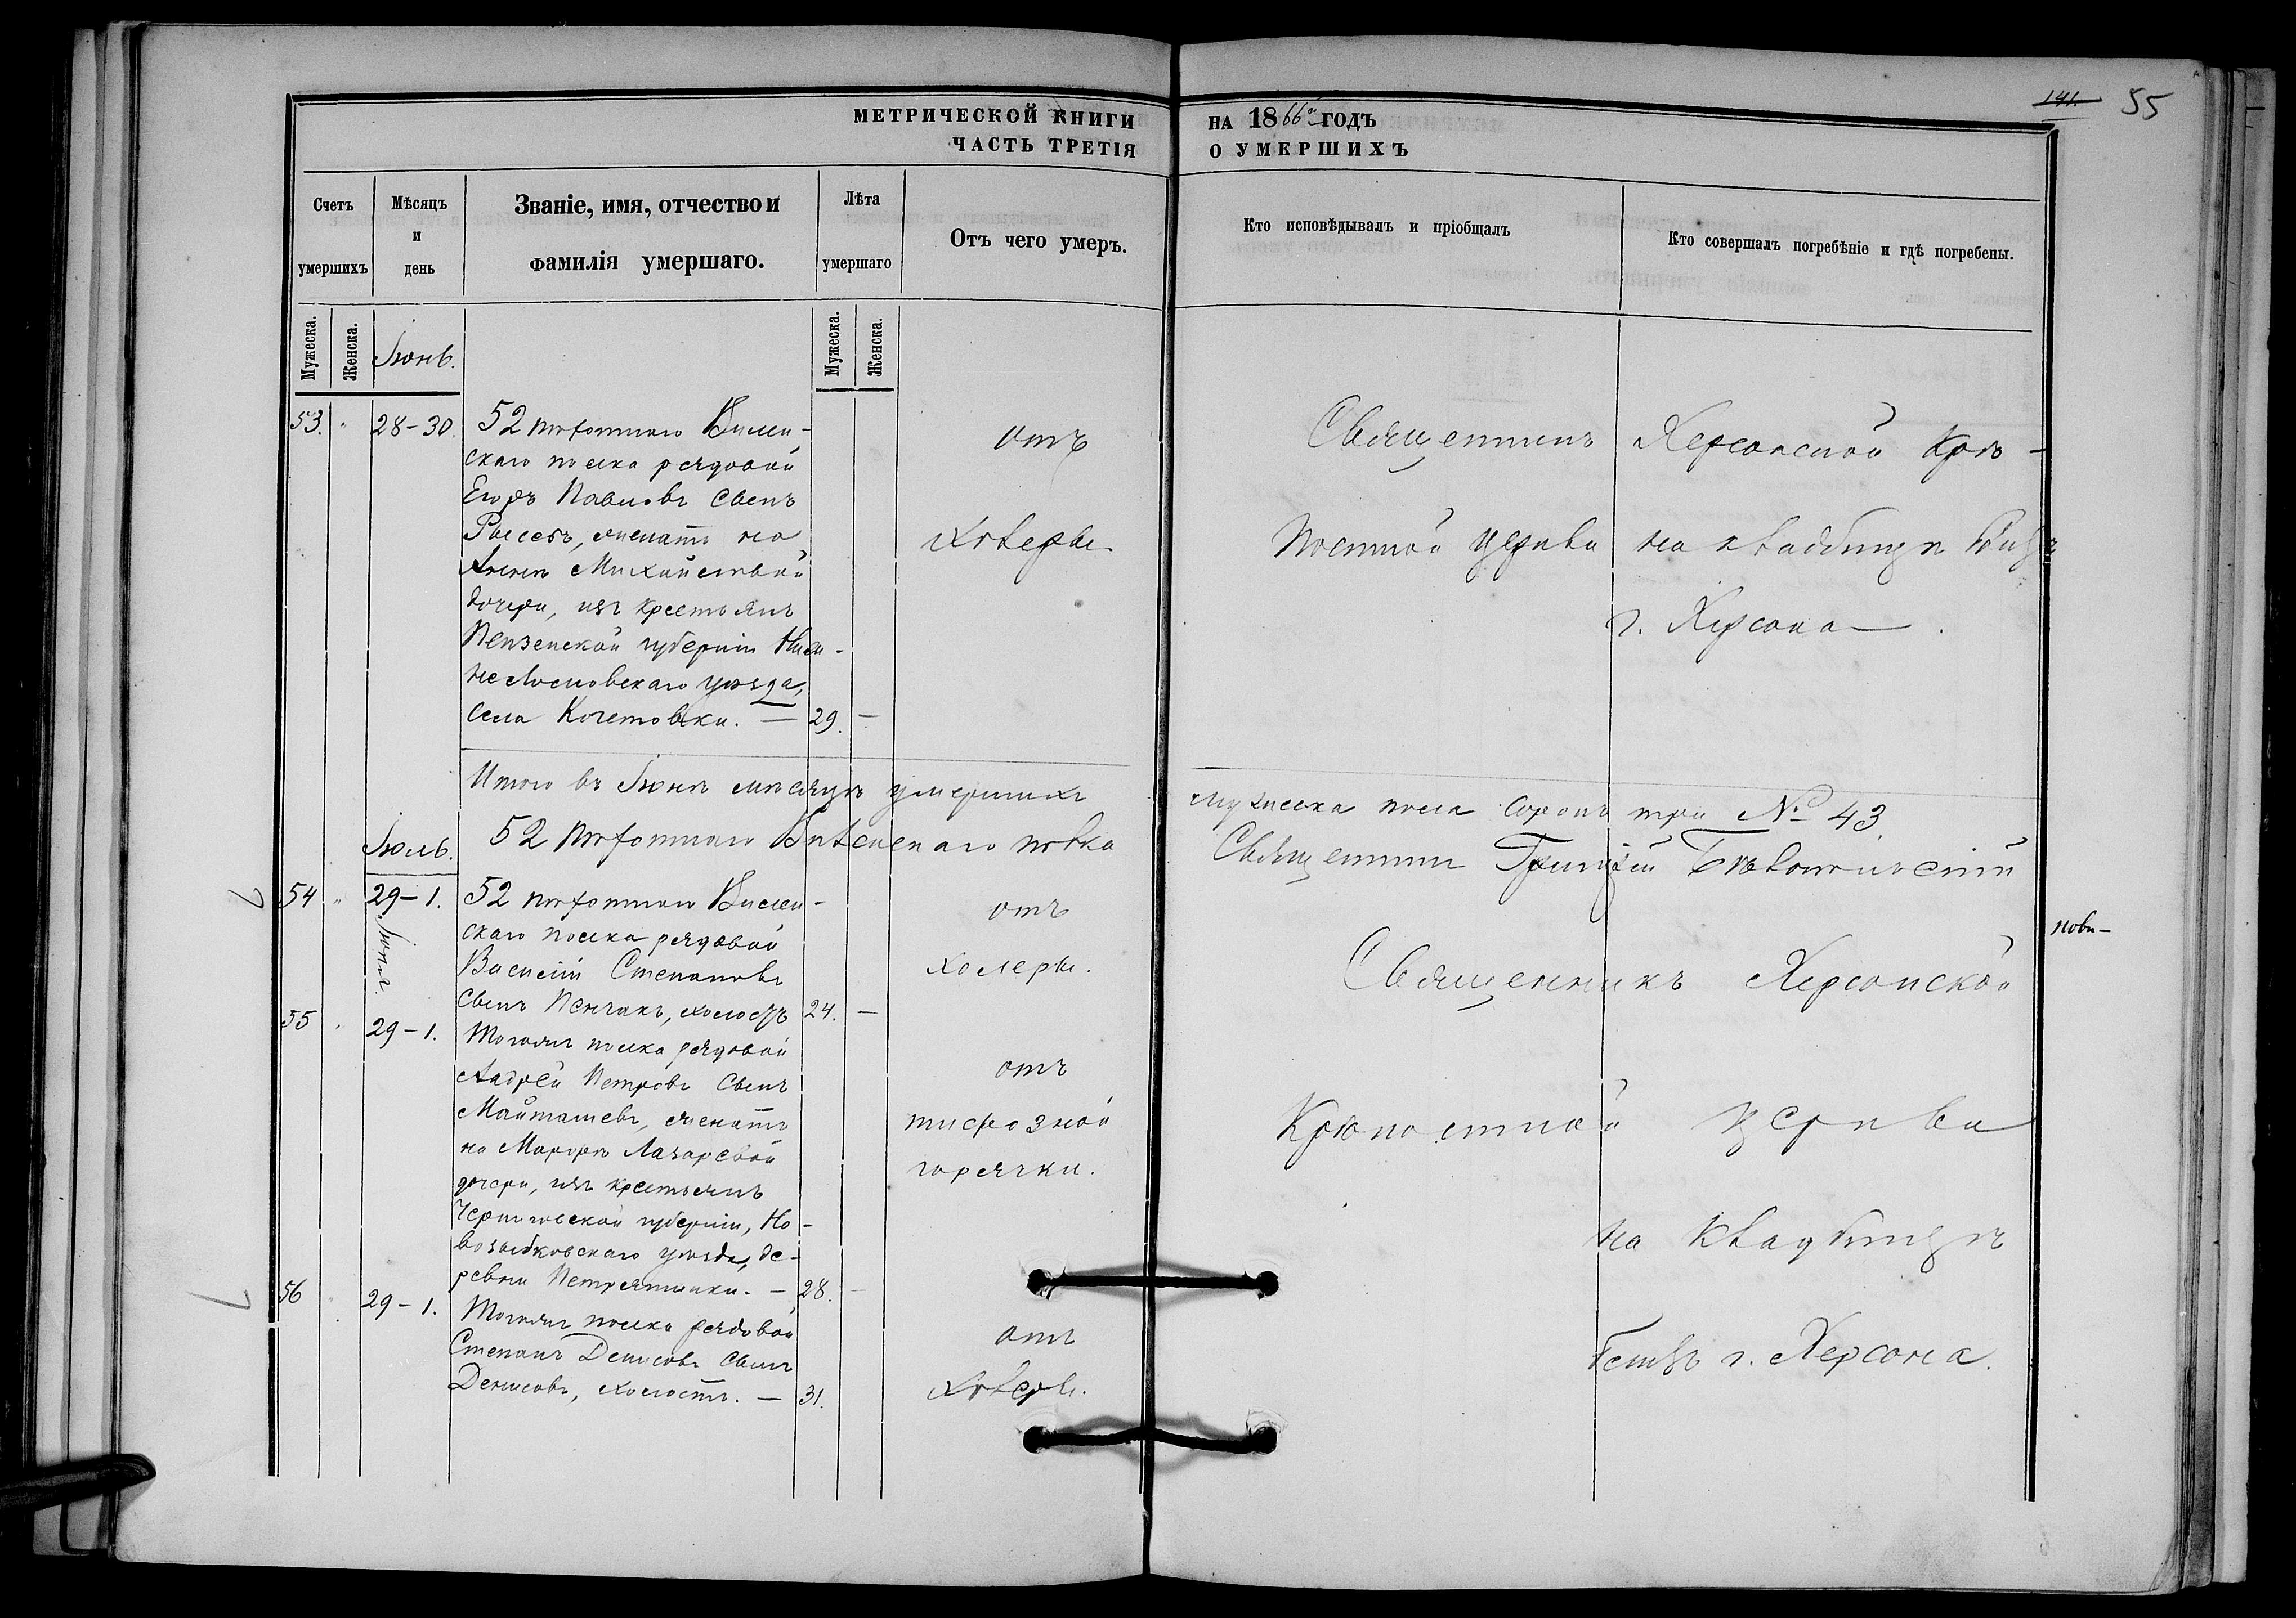 МЕТРИЧЕСКОЙ КНИГИ НА 1866й ГОДЪ
ЧАСТЬ ТРЕТІЯ О УМЕРШИХЪ
141. 55
Счетъ умершихъ
Мѣсяцъ и день
Званіе, имя, отчество и фамилія умершаго.
Лѣта умершаго
Отъ чего умеръ.
Кто исповѣдывалъ и пріобщалъ
Кто совершалъ погребѣніе и гдѣ погребены.
Мужеска. Женска. Іюнь. Мужеска. Женска.
53. " 28-30. 52 пѣхотнаго Вилен-
скаго полка рядовой
Егоръ Павловъ сынъ
женатъ на
Аннѣ Михайловой
дочери, изъ крестьянъ
Пензенской губерніи Ниж-
неломовскаго уѣзда,
села Кочетовки. — 29. —
отъ
холеры.
Священникъ Херсонской Крѣ-
постной церкви на кладбищѣ близъ
г. Херсона — .
Итого въ Іюнѣ мѣсяцѣ умершихъ мужеска пола сорокъ три № 43.
Іюль. 52 пѣхотнаго Виленскаго полка Священникъ Григорій
54 " 29-1. 52 пѣхотнаго Вилен-
Іюня.
скаго полка рядовой
Василій Степановъ
сынъ холостъ 24. —
отъ
холеры.
55 " 29-1. Тогожъ полка рядовой
Андрей Петровъ сынъ
женатъ
на Марѳѣ Лазаревой
дочери, изъ крестьянъ
Черниговской губерніи, Но-
возыбковскаго уѣзда, де-
ревни — 28. —
отъ
тифозной
горячки.
56 " 29-1. Тогожъ полка рядовой
Степанъ Денисовъ сынъ
Денисовъ, холостъ. — 31.
отъ
холеры.
Священникъ Херсонской
Крѣпостной церкви
на кладбищѣ
близъ г. Херсона.